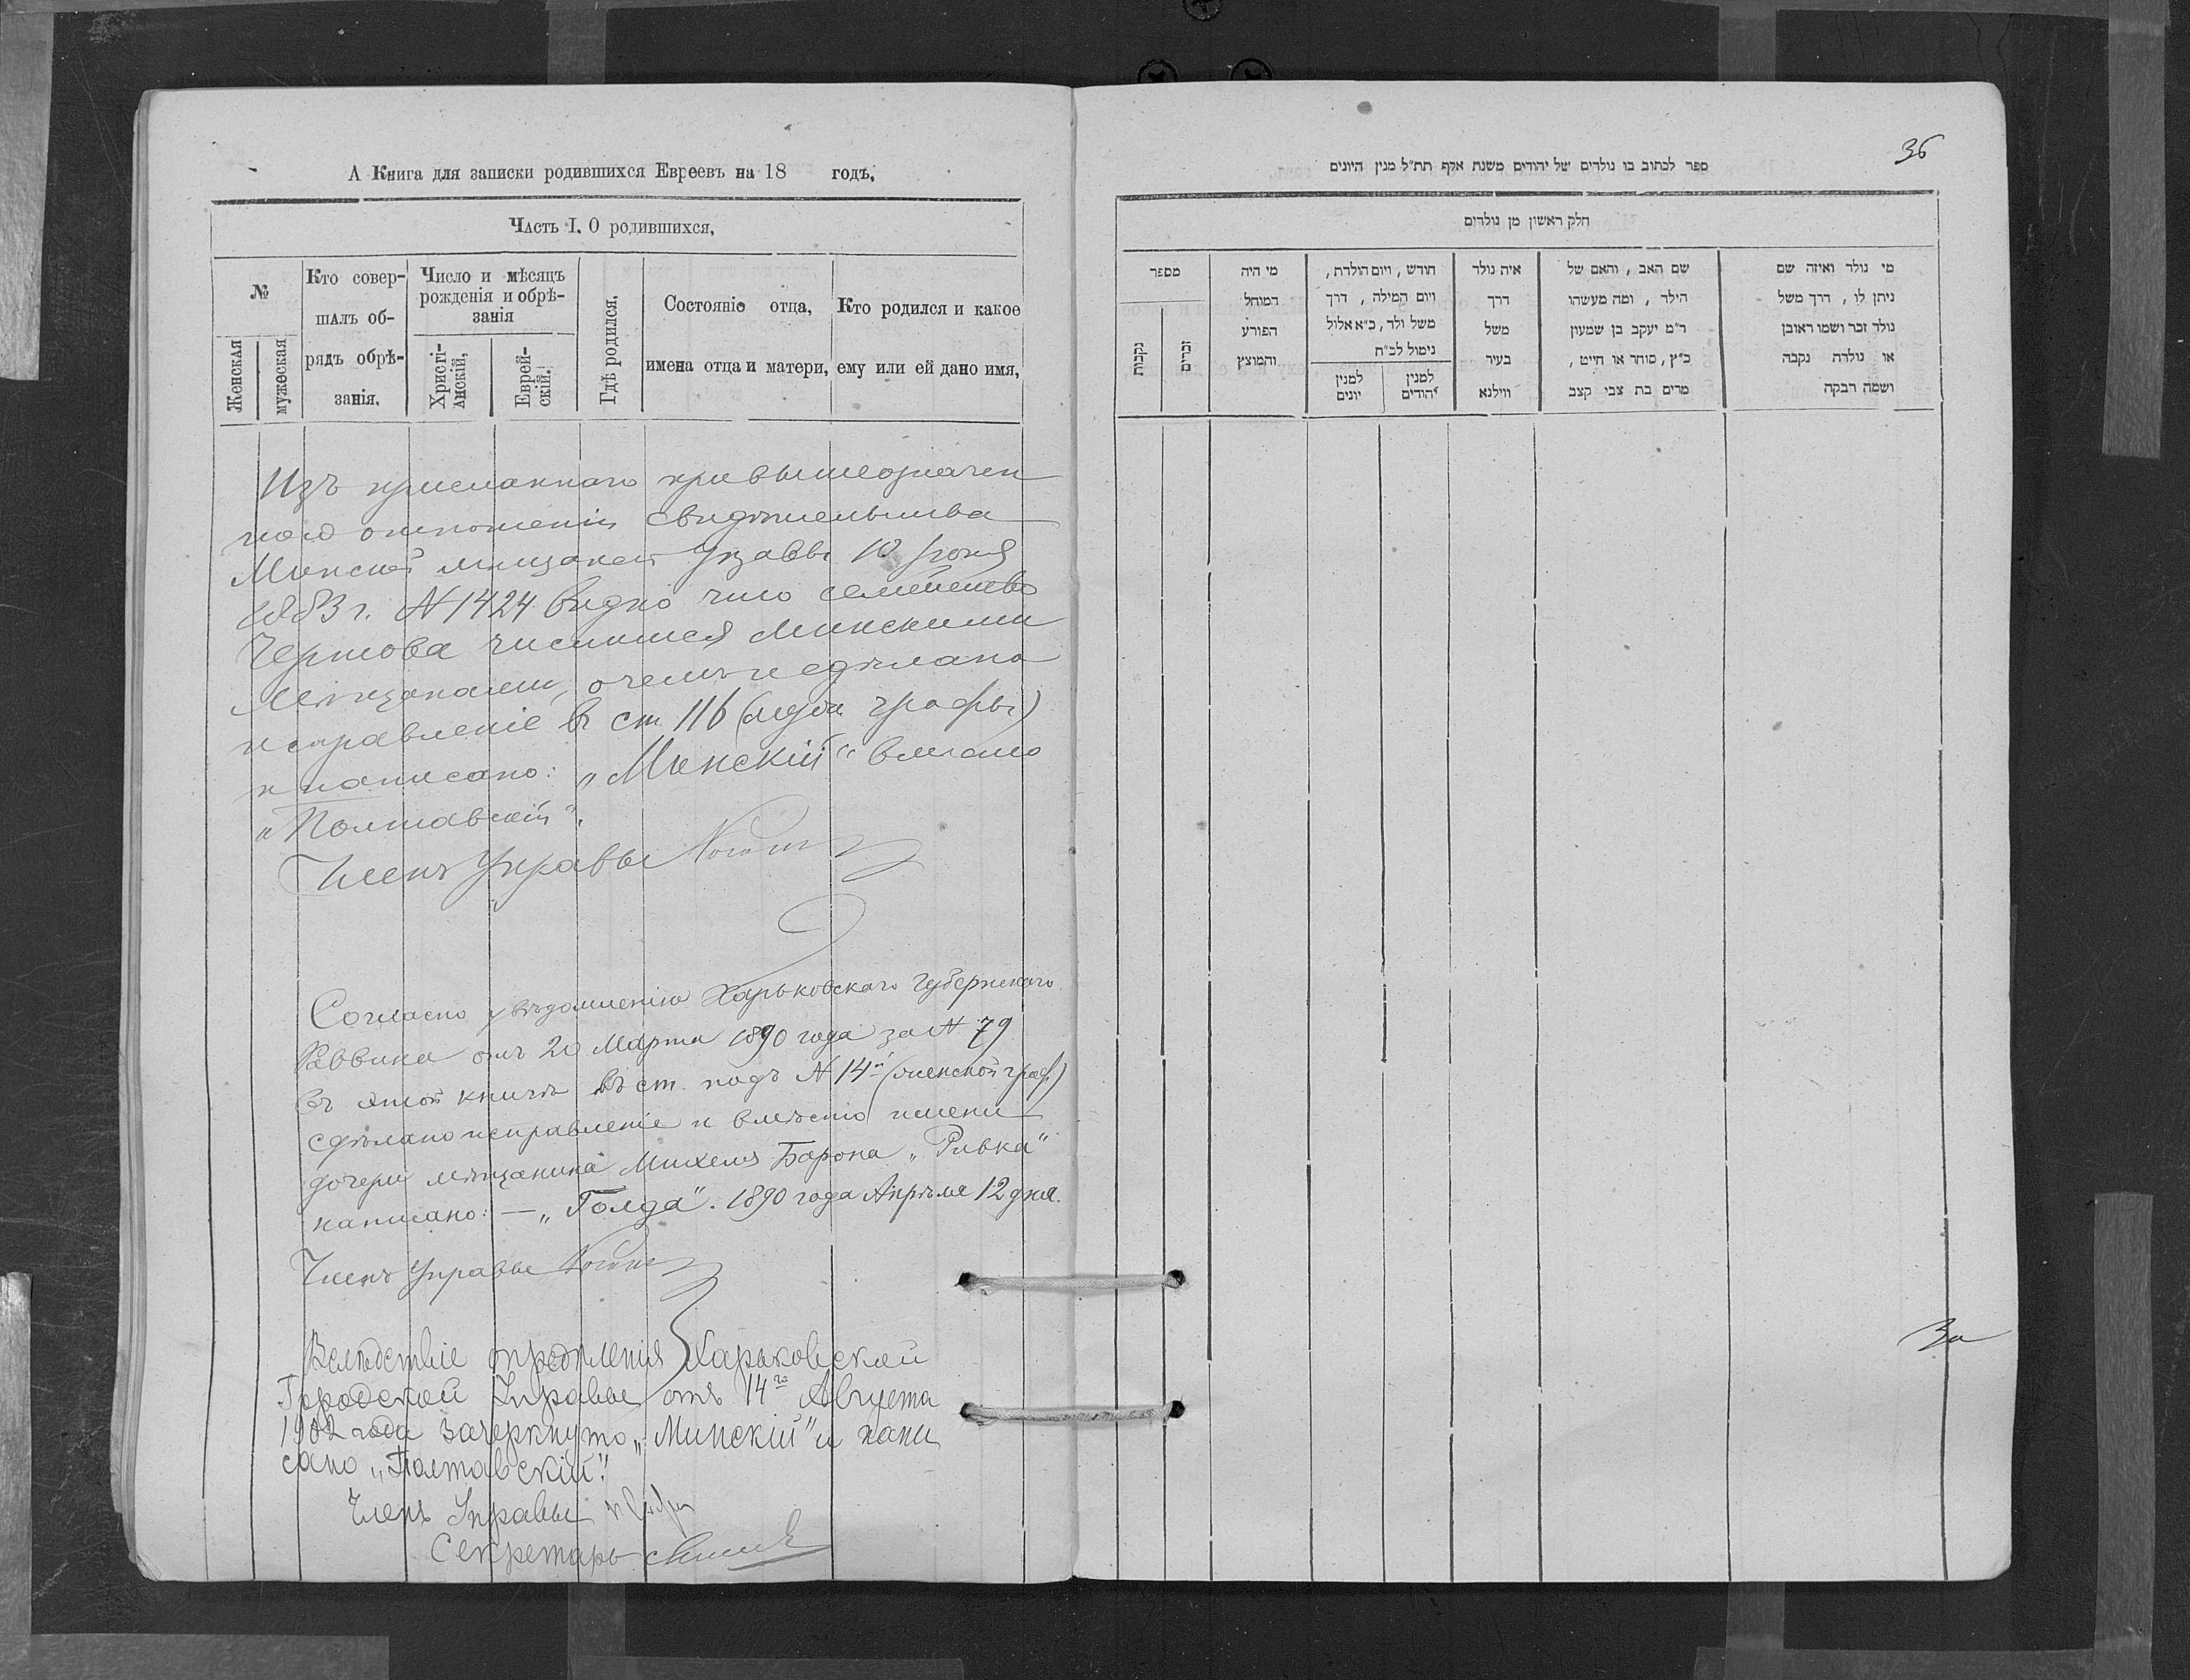 А Книга для записки родившихся Евреевъ на 18 годъ.
Часть I. О родившихся.
№
Женская
мужеская
Кто совер-
шалъ об-
рядъ обрѣ-
занія.
Число и мѣсяцъ
рожденія и обрѣ-
занія
Христі-
анскій.
Еврей-
скій.
Гдѣ родился.
Состояніе отца,
имена отца и матери,
Кто родился и какое
ему или ей дано имя,
Изъ присланнаго при вышеозначен
номъ отношеніи свидѣтельства
Минской мѣщанской Управы 10
1883 г. № 1424 видно что семейство
Чертова числится Минскими
мѣщанами, о чемъ и сдѣлано
исправленіе въ ст. 116 графы)
и написано: „Минскій“ вмѣсто
„Полтавскій“.
Членъ Управы
Согласно увѣдомленію Харьковскаго Губернскаго
Раввина отъ 20 Марта 1890 года за № 79
въ этой книгѣ въ ст. подъ № 14й (женской граф)
сдѣлано исправленіе и вмѣсто имени
дочери мѣщанина Михеля Барона „Ривка“
написано: — „Голда“. 1890 года Апрѣля 12 дня.
Членъ Управы
Вслѣдствіе Харьковской
Городской Управы отъ 14го Августа
1902 года зачеркнуто „Минскій“ и напи
сано „Полтавскій“.
Членъ Управы
Секретарь
36
ספר לכתוב בו נולדים של יהודים משנת אלף תת״ל מנין היונים
חלק ראשון מן נולדים
מספר
נקבות
זכרים
מי היה
המוהל
הפורע
והמוצץ
חודש, ויום הולדת,
ויום המילה, דרך
משל ולד, כ״א אלול
נימול לכ״ח
למנין
יונים
למנין
יהודים
איה נולד
דרך
משל
בעיר
ווילנא
שם האב, והאם של
הילד, ומה מעשהו
ר״מ יעקב בן שמעון
כ״ץ, סוחר או חייט,
מרים בת צבי קצב
מי נולד ואיזה שם
ניתן לו, דרך משל
נולד זכר ושמו ראובן
או נולדת נקבה
ושמה רבקה
За